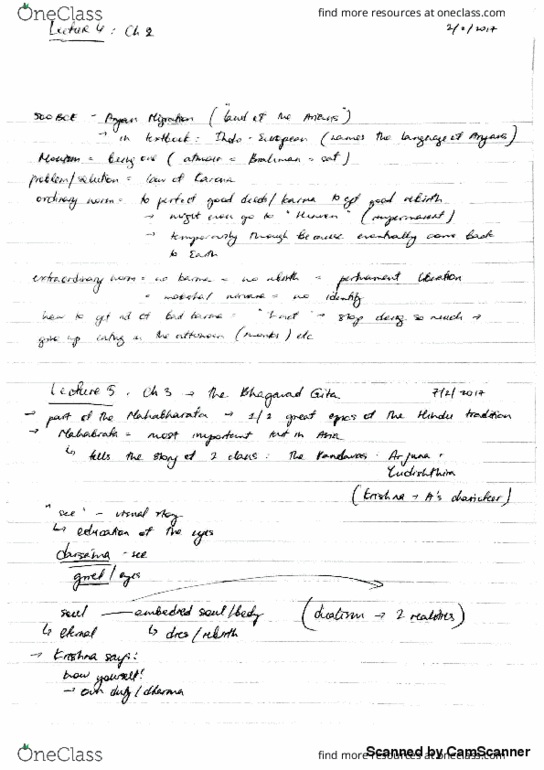 OneClass
find more resources at oneclass.com
Lecture 4 : Ch 2
2/2/2017
500 BCE - Aryan Migration ("land of the Aryans")
→ in textbook: Indo-European (names the language of Aryans)
Monism = being one (atman = Brahman = sat)
problem/solution = law of Karma
ordinary norm = to perfect good deeds/karma to get good rebirth
→ might even go to "Heaven" (impermanent)
→ temporarily though because eventually come back
to Earth
extraordinary norm = no karma = no rebirth = permanent liberation
= moksha/nirvana = no identity
how to get rid of bad karma = → stop doing so much →
give up eating in the afternoon (monks) etc
Lecture 5 . Ch 3 → the Bhagavad Gita
7/2/2017
→ part of the Mahabharata → 1/2 great epics of the Hindu tradition
→ Mahabrata = most important text in Asia
↳ tells the story of 2 clans: the Pandavas - Arjuna +
Yudishthira
(Krishna → A's charioteer)
"see" - visual
↳ education of the eyes
darsama - see
/eyes
soul — embodied soul/body (dualism → 2 realities)
↳ eternal ↳ dies/rebirth
→ Krishna says:
know yourself!
→ own duty/dharma
OneClass
find more resources at oneclass.com
Scanned by CamScanner